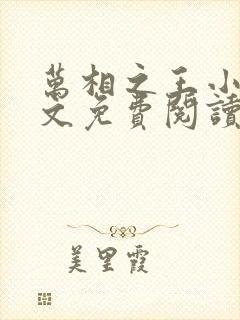 萬相之王小
文免費閱讀
美里霞